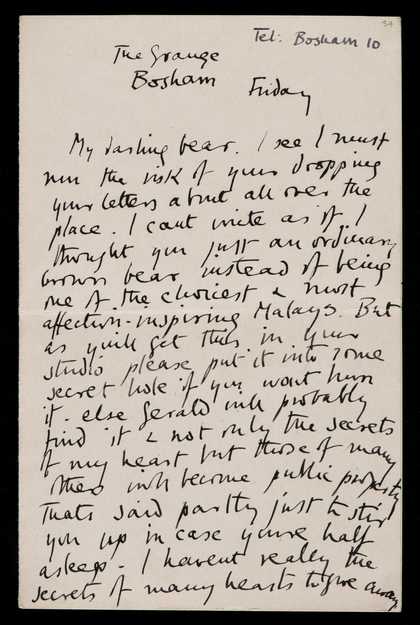 34
Tel: Bosham 10
The Grange
Bosham
Friday
My darling bear. I see I must
run the risk of your dropping
your letters about all over the
place. I cant write as if I
thought you just an ordinary
brown bear instead of being
one of the choicest & most
affection-inspiring Malays. But
as you'll get this in your
studio please put it into some
secret hole if you wont burn
it. else Gerald will probably
find it & not only the secrets
of my heart but those of many
others will become public property
Thats said partly just to stir
you up in case youre half
asleep. I havent really the
secrets of many hearts to give away